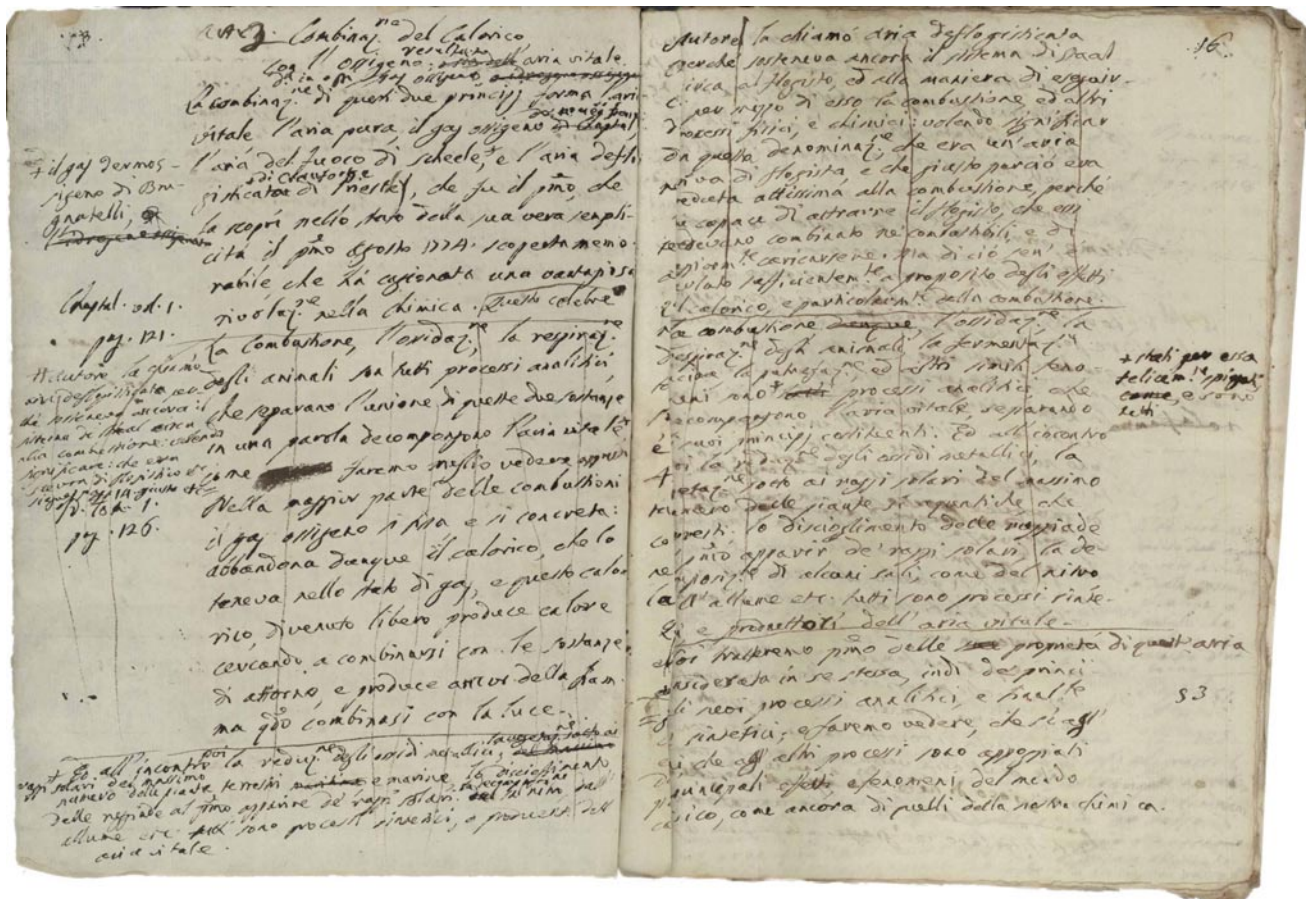 Combinaz.ne del Calorico
con l'ossigeno: aria vitale
La combinaz.ne di questi due principj forma l'aria
vitale l'aria pura, il gas ossigeno
l'aria del fuoco di Scheele, e l'aria deflo
gisticata di Priestley, che fu il pmo, che
la scoprì nello stato della sua vera sempli-
cità il pmo Agosto 1774. scoperta memo-
rabile che ha cagionata una vantagiosa
rivoluz.ne nella chimica. Questo celebre
La Combustione, l'ossidaz.ne, la respiraz.ne
degli animali son tutti processi analitici
che separano l'unione di queste due sostanze
in una parola decompongono l'aria vitale
come faremo meglio vedere appresso
Nella maggior parte delle combustioni
il gas ossigeno si fissa e si concreta:
abbandona dunque il calorico, che lo
teneva nello stato di gas, e questo calo-
rico, divenuto libero produce calore
cercando a combinarsi con le sostanze
di attorno, e produce ancor della fiam-
ma qdo combinasi con la luce.
+ Ed all'incontro poi la reduz.ne degli ossidi metallici,
raggi solari del massimo
numero delle piante terrestri e marine, lo discioglimento
delle ruggiade al pmo apparire de' raggi solari
allume etc. sono processi sintetici, e produttori dell'
aria vitale.
+ il gas termos-
sigeno di Bru-
gnatelli,
Chaptal. vol. 1.
pag. 121.
Autore la chiamò
aria deflogisticata per-
ché sosteneva ancora il
sistema di Staal
alla combustione: volendo
significare: che era
vol. 1.
pag. 126.
16
Autore la chiamò aria deflogisticata
perché sosteneva ancora il sistema di Staal
circa al flogisto, ed alla maniera di eseguir-
si per mezzo di esso la combustione, ed altri
processi fisici, e chimici: volendo significar
da questa denominaz.ne, che era un'aria
priva di flogisto, e che giusto perciò era
creduta attissima alla combustione, perché
capace di attrarre il flogisto, che essi
credevano combinato ne' combustibili, e di
caricarsene. Ma di ciò sen'è
parlato sufficientem.te a proposito degli effetti
del calorico, e particolarm.te della combustione.
La combustione dunque, l'ossidaz.ne, la
respiraz.ne degli animali la fermentaz.ne
acida la putrefaz.ne ed altri simili feno-
meni sono + processi analitici, che
decompongono l'aria vitale, separando
i suoi principj costituenti. Ed all'incontro
poi la reduz.ne degli ossidi metallici, la
vegetaz.ne sotto ai raggi solari del massimo
numero delle piante sì aquatiche che
terrestri, lo discioglimento delle ruggiade
al pmo apparir de' raggi solari, la de-
composiz.ne di alcuni sali, come del nitro
dell'allume etc. tutti sono processi sinte-
tici e produttori dell'aria vitale.
Noi tratteremo pmo delle proprietà di quest'aria
considerata in se stessa, indi de' princi-
pali suoi processi analitici, e finalm.te
sintetici; e faremo vedere, che sì agl'
uni che agli altri processi sono appoggiati
i principali effetti, e fenomeni del mondo
fisico, come ancora di quelli della nostra chimica.
+ stati per essa
felicem.te spiegati
come, e sono
tutti
93